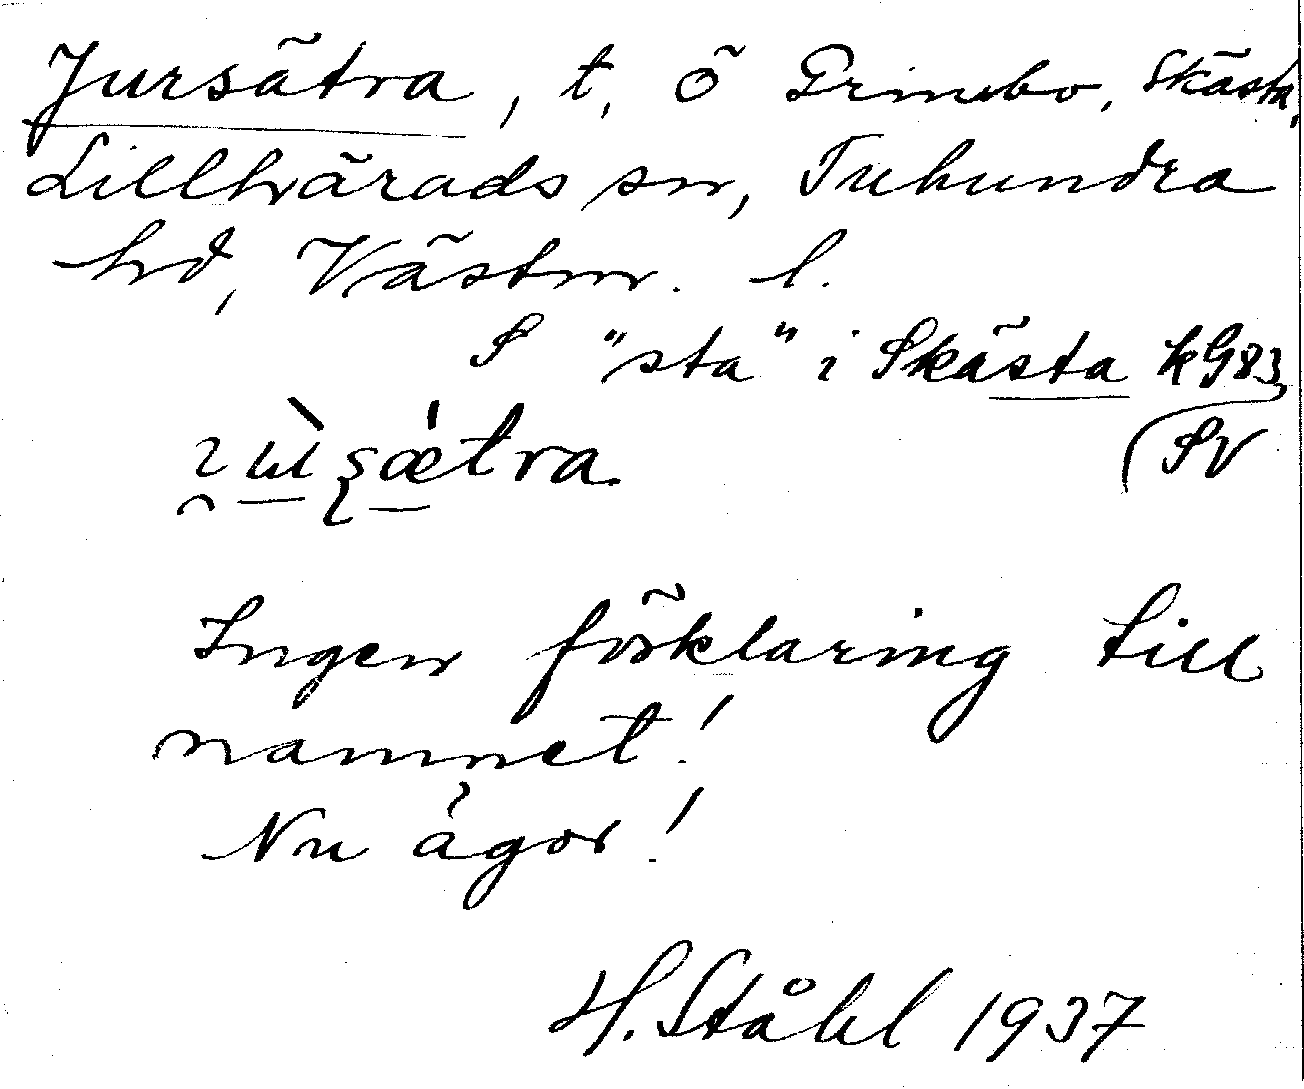 Jursätra, t, ö Grimsbo, Skästa,
Lillhärads sn, Tuhundra
hd, Västm. l.
S "sta" i Skästa kG83
SV
Ingen förklaring till
namnet!
Nu ägor!
H. Ståhl 1937